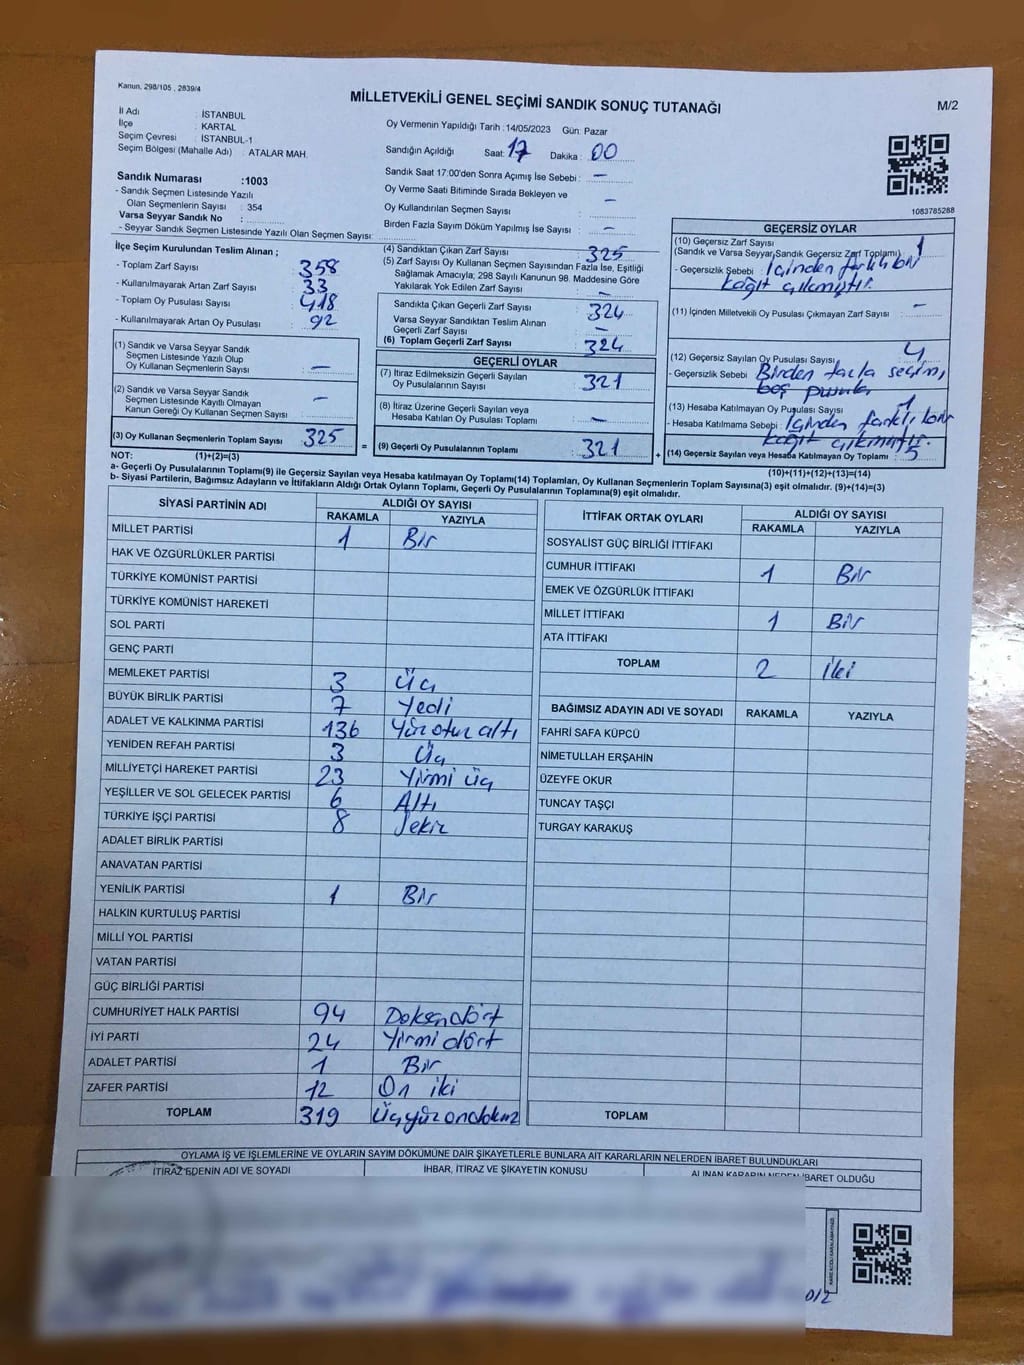 Kanun, 298/105 , 2839/4
MİLLETVEKİLİ GENEL SEÇİMİ SANDIK SONUÇ TUTANAĞI
M/2
İl Adı : İSTANBUL
İlçe : KARTAL
Seçim Çevresi : İSTANBUL-1
Seçim Bölgesi (Mahalle Adı) : ATALAR MAH.
Oy Vermenin Yapıldığı Tarih :14/05/2023 Gün: Pazar
Sandığın Açıldığı Saat: 17 Dakika : 00
Sandık Saat 17:00'den Sonra Açımış İse Sebebi : –
Oy Verme Saati Bitiminde Sırada Bekleyen ve
Oy Kullandırılan Seçmen Sayısı : –
Birden Fazla Sayım Döküm Yapılmış İse Sayısı : –
Sandık Numarası :1003
- Sandık Seçmen Listesinde Yazılı
Olan Seçmenlerin Sayısı : 354
Varsa Seyyar Sandık No :
- Seyyar Sandık Seçmen Listesinde Yazılı Olan Seçmen Sayısı:
1083785288
İlçe Seçim Kurulundan Teslim Alınan ;
- Toplam Zarf Sayısı : 358
- Kullanılmayarak Artan Zarf Sayısı : 33
- Toplam Oy Pusulası Sayısı : 418
- Kullanılmayarak Artan Oy Pusulası : 92
(1) Sandık ve Varsa Seyyar Sandık
Seçmen Listesinde Yazılı Olup
Oy Kullanan Seçmenlerin Sayısı : –
(2) Sandık ve Varsa Seyyar Sandık
Seçmen Listesinde Kayıtlı Olmayan
Kanun Gereği Oy Kullanan Seçmen Sayısı : –
(3) Oy Kullanan Seçmenlerin Toplam Sayısı : 325
(4) Sandıktan Çıkan Zarf Sayısı : 325
(5) Zarf Sayısı Oy Kullanan Seçmen Sayısından Fazla İse, Eşitliği
Sağlamak Amacıyla; 298 Sayılı Kanunun 98. Maddesine Göre
Yakılarak Yok Edilen Zarf Sayısı : –
Sandıkta Çıkan Geçerli Zarf Sayısı : 324
Varsa Seyyar Sandıktan Teslim Alınan
Geçerli Zarf Sayısı : –
(6) Toplam Geçerli Zarf Sayısı : 324
GEÇERLİ OYLAR
(7) İtiraz Edilmeksizin Geçerli Sayılan
Oy Pusulalarının Sayısı : 321
(8) İtiraz Üzerine Geçerli Sayılan veya
Hesaba Katılan Oy Pusulası Toplamı : –
= (9) Geçerli Oy Pusulalarının Toplamı : 321 +
GEÇERSİZ OYLAR
(10) Geçersiz Zarf Sayısı
(Sandık ve Varsa Seyyar Sandık Geçersiz Zarf Toplamı) : 1
- Geçersizlik Sebebi : İçinden farklı bir
kağıt çıkmıştır.
(11) İçinden Milletvekili Oy Pusulası Çıkmayan Zarf Sayısı : –
(12) Geçersiz Sayılan Oy Pusulası Sayısı : 4
- Geçersizlik Sebebi : Birden fazla seçim,
boş pusula
(13) Hesaba Katılmayan Oy Pusulası Sayısı : 1
- Hesaba Katılmama Sebebi : İçinden farklı bir
kağıt çıkmıştır.
(14) Geçersiz Sayılan veya Hesaba Katılmayan Oy Toplamı : 5
NOT: (1)+(2)=(3)
(10)+(11)+(12)+(13)=(14)
a- Geçerli Oy Pusulalarının Toplamı(9) ile Geçersiz Sayılan veya Hesaba katılmayan Oy Toplamı(14) Toplamları, Oy Kullanan Seçmenlerin Toplam Sayısına(3) eşit olmalıdır. (9)+(14)=(3)
b- Siyasi Partilerin, Bağımsız Adayların ve İttifakların Aldığı Ortak Oyların Toplamı, Geçerli Oy Pusulalarının Toplamına(9) eşit olmalıdır.
SİYASİ PARTİNİN ADI ALDIĞI OY SAYISI
RAKAMLA YAZIYLA
MİLLET PARTİSİ 1 Bir
HAK VE ÖZGÜRLÜKLER PARTİSİ
TÜRKİYE KOMÜNİST PARTİSİ
TÜRKİYE KOMÜNİST HAREKETİ
SOL PARTİ
GENÇ PARTİ
MEMLEKET PARTİSİ 3 Üç
BÜYÜK BİRLİK PARTİSİ 7 Yedi
ADALET VE KALKINMA PARTİSİ 136 Yüzotuzaltı
YENİDEN REFAH PARTİSİ 3 Üç
MİLLİYETÇİ HAREKET PARTİSİ 23 Yirmi üç
YEŞİLLER VE SOL GELECEK PARTİSİ 6 Altı
TÜRKİYE İŞÇİ PARTİSİ 8 Sekiz
ADALET BİRLİK PARTİSİ
ANAVATAN PARTİSİ
YENİLİK PARTİSİ 1 Bir
HALKIN KURTULUŞ PARTİSİ
MİLLİ YOL PARTİSİ
VATAN PARTİSİ
GÜÇ BİRLİĞİ PARTİSİ
CUMHURİYET HALK PARTİSİ 94 Doksandört
İYİ PARTİ 24 Yirmidört
ADALET PARTİSİ 1 Bir
ZAFER PARTİSİ 12 On iki
TOPLAM 319 Üçyüzondokuz
İTTİFAK ORTAK OYLARI ALDIĞI OY SAYISI
RAKAMLA YAZIYLA
SOSYALİST GÜÇ BİRLİĞİ İTTİFAKI
CUMHUR İTTİFAKI 1 Bir
EMEK VE ÖZGÜRLÜK İTTİFAKI
MİLLET İTTİFAKI 1 Bir
ATA İTTİFAKI
TOPLAM 2 İki
BAĞIMSIZ ADAYIN ADI VE SOYADI RAKAMLA YAZIYLA
FAHRİ SAFA KÜPCÜ
NİMETULLAH ERŞAHİN
ÜZEYFE OKUR
TUNCAY TAŞÇI
TURGAY KARAKUŞ
TOPLAM
OYLAMA İŞ VE İŞLEMLERİNE VE OYLARIN SAYIM DÖKÜMÜNE DAİR ŞİKAYETLERLE BUNLARA AİT KARARLARIN NELERDEN İBARET BULUNDUKLARI
İTİRAZ EDENİN ADI VE SOYADI İHBAR, İTİRAZ VE ŞİKAYETİN KONUSU ALINAN KARARIN NEDEN İBARET OLDUĞU